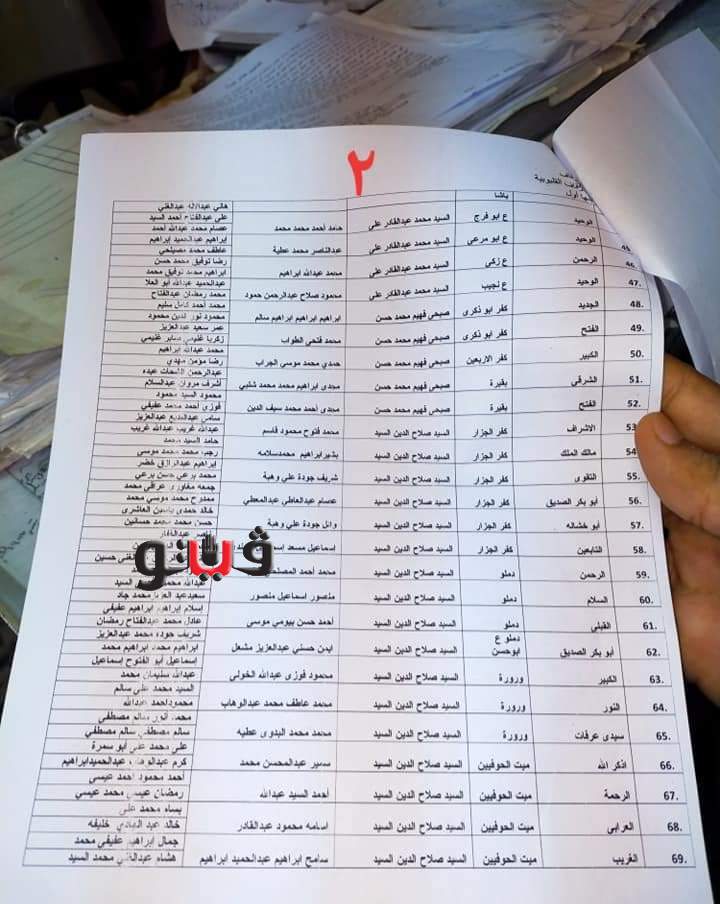 ٢
القليوبية
أول
باشا
هاني عبداللاه عبدالغني
الوحيد ع ابو فرج السيد محمد عبدالقادر على حامد أحمد محمد محمد على عبدالفتاح أحمد السيد
عصام محمد عبدالله أحمد
الوحيد ع ابو مرعى السيد محمد عبدالقادر على عبدالناصر محمد عطية ابراهيم عبدالحميد إبراهيم
عاطف محمد مصيلحي
46. الرحمن ع زكى السيد محمد عبدالقادر على محمد عبدالله ابراهيم رضا توفيق محمد حسن
ابراهيم محمد توفيق محمد
47. الوحيد ع نجيب السيد محمد عبدالقادر على محمود صلاح عبدالرحمن حمود عبدالحميد عبدالله أبو العلا
محمد رمضان عبدالفتاح
48. الجديد كفر ابو ذكرى صبحى فهيم محمد حسن ابراهيم ابراهيم ابراهيم سالم محمد أحمد كامل سليم
محمود نور الدين محمود
49. الفتح كفر ابو ذكرى صبحى فهيم محمد حسن محمد فتحي الطواب عمر سعيد عبدالعزيز
زكريا غنيمي صابر غنيمي
50. الكبير كفر الاربعين صبحى فهيم محمد حسن حمدي محمد موسي الجراب محمد عبدالله ابراهيم
رضا مؤمن مهدي
51. الشرقي بقيرة صبحى فهيم محمد حسن مجدى ابراهيم محمد محمد شلبي عبدالرحمن الشحات عبده
أشرف مروان عبدالسلام
52. الفتح بقيرة صبحى فهيم محمد حسن مجدى أحمد محمد سيف الدين محمود السيد محمود
فوزى أحمد محمد عفيفي
53 الاشراف كفر الجزار السيد صلاح الدين السيد محمد فتوح محمود قاسم سامى عبدالبديع عبدالعزيز
عبدالله غريب عبدالله غريب
54 مالك الملك كفر الجزار السيد صلاح الدين السيد بشيرابراهيم محمدسلامه حامد السيد محمد
رجب محمد محمد موسى
55. التقوى كفر الجزار السيد صلاح الدين السيد شريف جودة علي وهبة ابراهيم عبدالرازق خضر
محمد برعي حسن برعي
56. أبو بكر الصديق كفر الجزار السيد صلاح الدين السيد عصام عبدالعاطي عبدالمعطي جمعه مغاورى عراقي محمد
ممدوح محمد موسي محمد
57. أبو خشاله كفر الجزار السيد صلاح الدين السيد وائل جودة علي وهبة خالد حمدى ياسين العاشرى
حسن محمد محمد حسانين
58. التابعين كفر الجزار السيد صلاح الدين السيد اسماعيل مسعد عبدالغفار
ڤيتو
حسين
59. الرحمن دملو السيد صلاح الدين السيد محمد أحمد
عبدالله محمد السيد
60. السلام دملو السيد صلاح الدين السيد منصور اسماعيل منصور سعيدعبد العزيز محمد جاد
إسلام إبراهيم ابراهيم عفيفي
61. القبلي دملو السيد صلاح الدين السيد أحمد حسن بيومي موسى عادل محمد عبدالفتاح رمضان
شريف جوده محمد عبدالعزيز
62. أبو بكر الصديق دملو ع ابوحسن السيد صلاح الدين السيد ايمن حسني عبدالعزيز مشعل ابراهيم محمد ابراهيم محمد
إسماعيل أبو الفتوح إسماعيل
63. الكبير ورورة السيد صلاح الدين السيد محمود فوزى عبدالله الخولى عبدالله سليمان محمد
السيد محمد علي سالم
64. النور ورورة السيد صلاح الدين السيد محمد عاطف محمد عبدالوهاب محموداحمد عبدالله
محمد أنور سالم مصطفى
65. سيدى عرفات ورورة السيد صلاح الدين السيد محمد محمد البدوى عطيه سالم مصطفى سالم مصطفي
على محمد على أبو سمرة
66. اذكر الله ميت الحوفيين السيد صلاح الدين السيد سمير عبدالمحسن محمد كرم عبدالوهاب عبدالحميدابراهيم
أحمد محمود احمد عيسى
67. الرحمة ميت الحوفيين السيد صلاح الدين السيد أحمد السيد عبدالله رمضان عيسى محمد عيسي
محمد على
68. العرابى ميت الحوفيين السيد صلاح الدين السيد اسامه محمود عبدالقادر خالد عبد الهادي خليفه
جمال ابراهيم عفيفي محمد
69. الغريب ميت الحوفيين السيد صلاح الدين السيد سامح ابراهيم عبدالحميد ابراهيم هشام عبدالغني محمد السيد